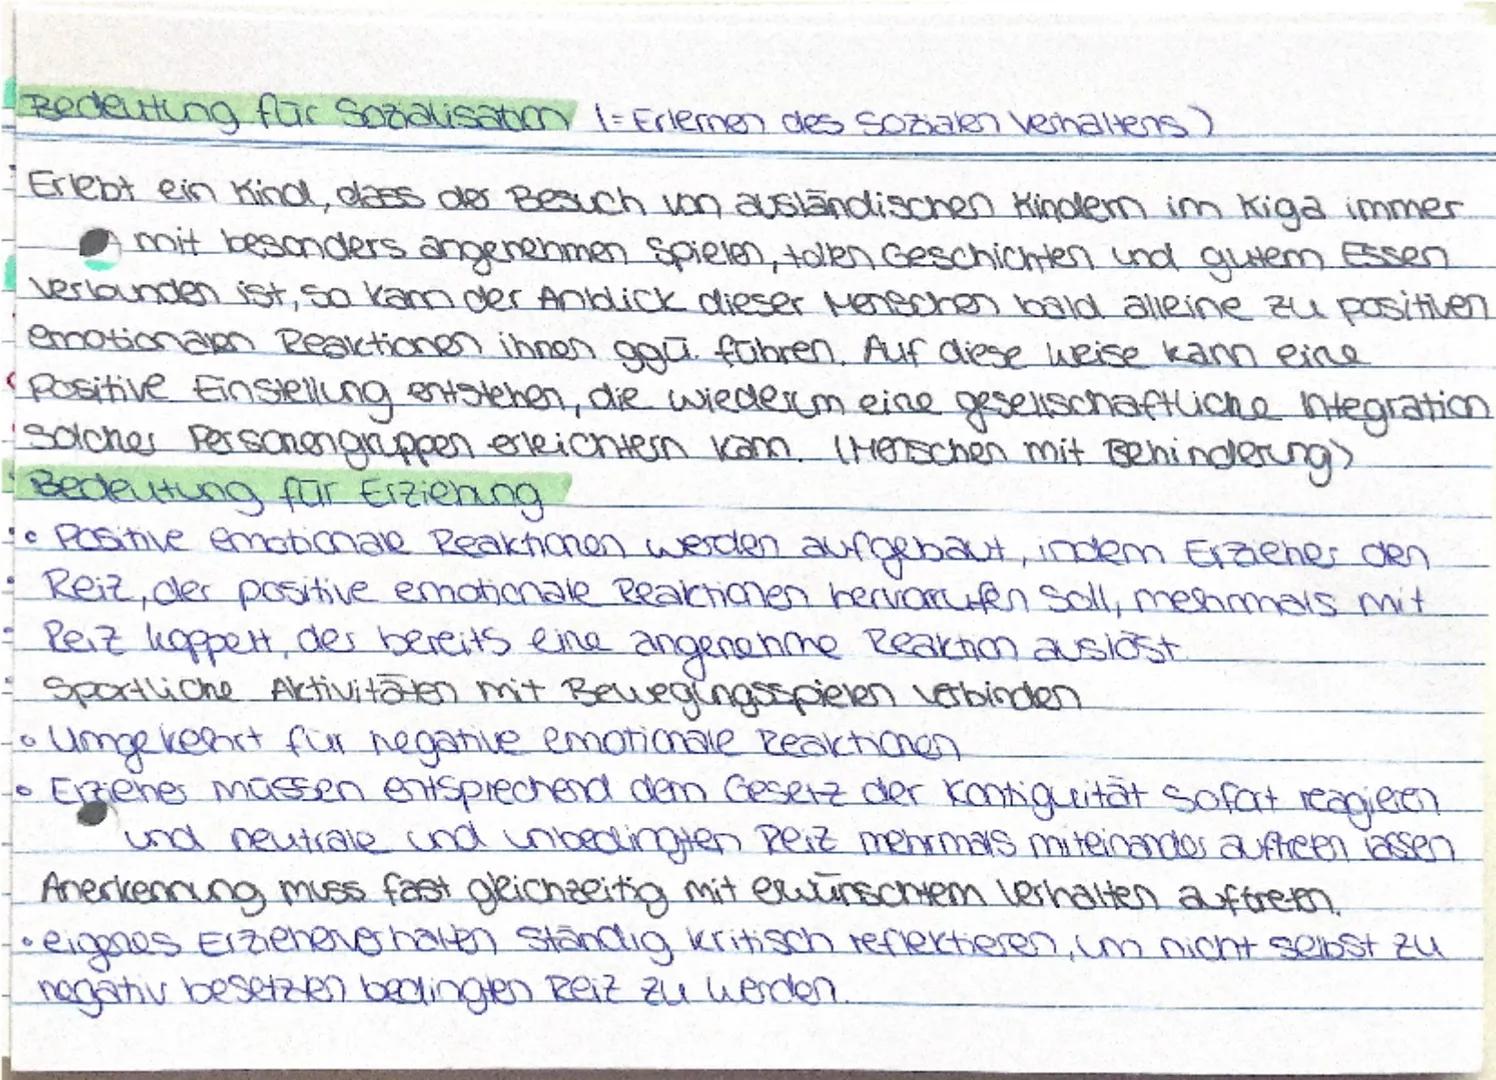 Bedeutung für Sozialisation (= Erlernen des sozialen Verhaltens)
Erlebt ein Kind, dass der Besuch von ausländischen Kindern im Kiga immer
mit besonders angenehmen Spielen, tollen Geschichten und gutem Essen
verbunden ist, so kann der Anblick dieser Menschen bald alleine zu positiven
emotionalen Reaktionen ihnen ggü. führen. Auf diese Weise kann eine
positive Einstellung entstehen, die wiederum eine gesellschaftliche Integration
solcher Personengruppen erleichtern kann. (Menschen mit Behinderung)
Bedeutung für Erziehung
• Positive emotionale Reaktionen werden aufgebaut, indem Erzieher den
Reiz, der positive emotionale Reaktionen hervorrufen soll, mehrmals mit
Reiz koppelt, der bereits eine angenehme Reaktion auslöst.
Sportliche Aktivitäten mit Bewegungsspielen verbinden
• Umgekehrt für negative emotionale Reaktionen
• Erzieher müssen entsprechend dem Gesetz der Kontiguität sofort reagieren
und neutrale und unbedingten Reiz mehrmals miteinander auftreten lassen
Anerkennung muss fast gleichzeitig mit erwünschtem Verhalten auftreten.
• eigenes Erzieherverhalten ständig kritisch reflektieren, um nicht selbst zu
negativ besetzten bedingten Reiz zu werden.